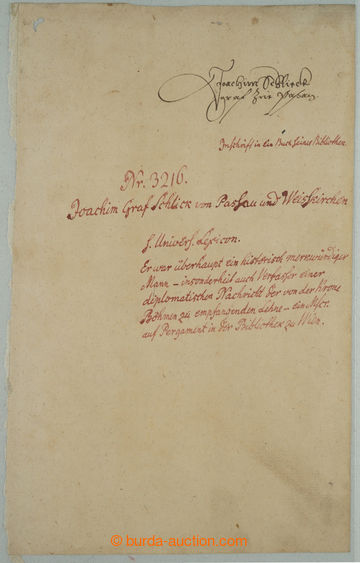 8
Joachim Schlick
graf zue Pasan
Inschrift in ein Buch seines Bibliothek.
Nr. 3216.
Joachim Graf Schlick von Passau und Weisskirchen
s. Univers. Lexicon.
Er war überhaupt ein historisch merkwürdiger
Mann – insonderheit auch Verfasser einer
diplomatischen Nachricht der von der Krone
Böhmen zu empfangenden Lehne – ein Mscr.
auf Pergament in der Bibliothek zu Wien.
© burda-auction.com